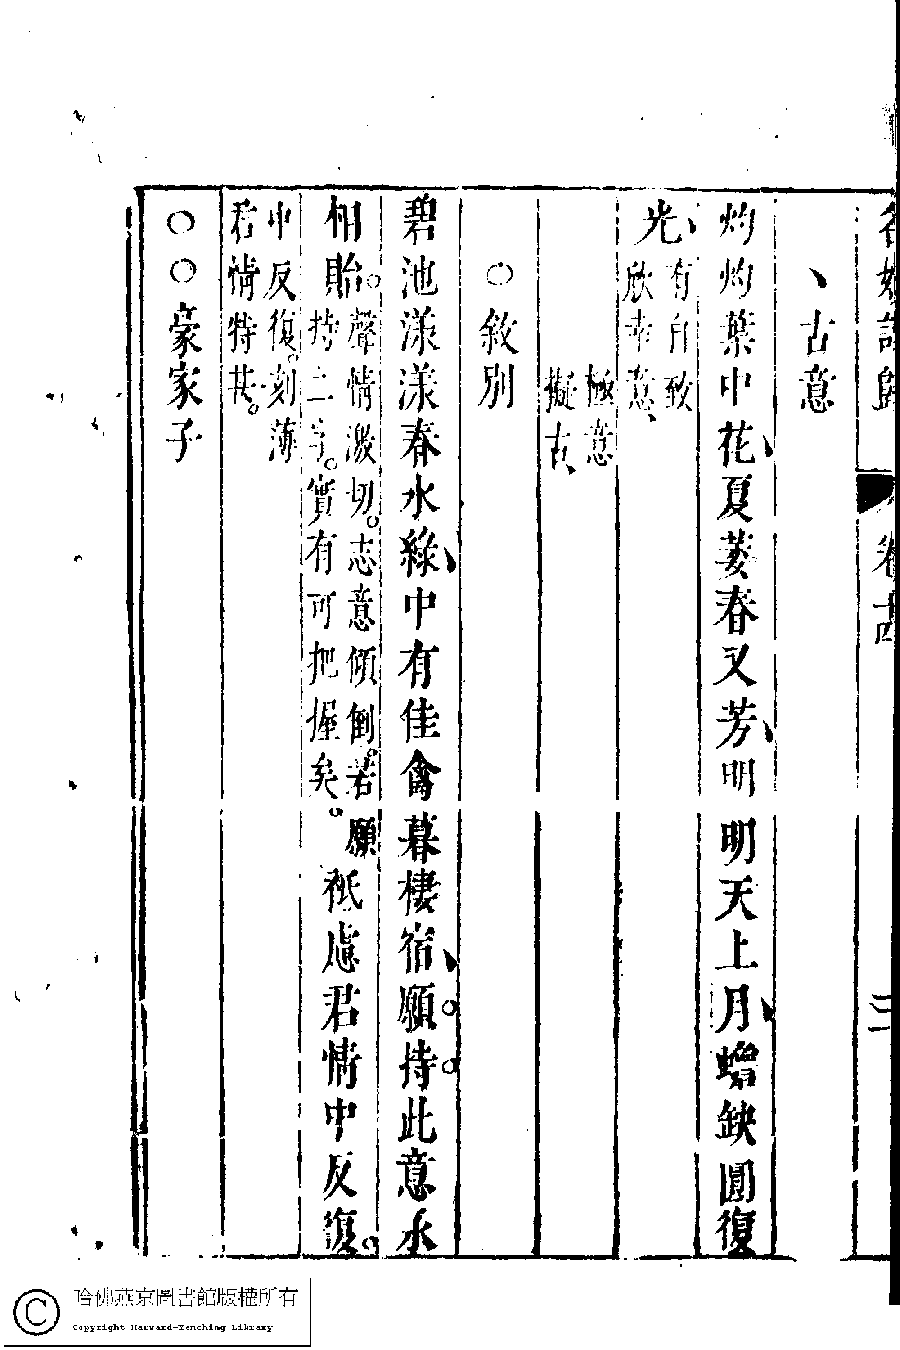 名媛詩歸 卷十四 三
丶古意
灼灼葉中花夏萎春又芳明明天上月蟾缺圓復
光有自致
欣幸意
極意
擬古
○敘別
碧池漾漾春水綠中有佳禽暮棲宿願持此意永
相貽聲情激切志意傾倒若願
持二字實有可把握矣祇慮君情中反復
中反復刻薄
君情特甚
○○豪家子
哈佛燕京圖書館版權所有
Copyright Harvard-Yenching Library